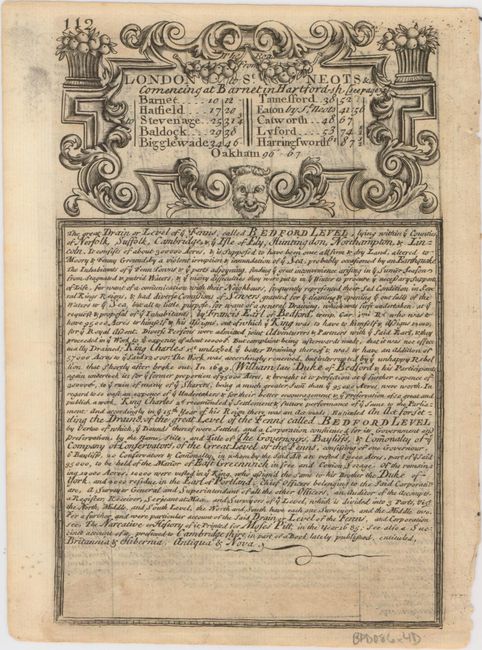 112
The Road
From
LONDON to St. NEOTS &c.
Comencing at Barnet in Hartford-sh.
Barnet
Hatfield
to Stevenage
Baldock
Bigglewade
Tamesford
Eaton by St. Neots
Catworth 48 67
Lyford
Harringsword
Oakham 96 67
The great Drain or Level of ye Fenns, called BEDFORD LEVEL, lying within ye Counties
of Norfolk, Suffolk, Cambridge, & ye Isle of Ely, Huntingdon, Northampton, & Lin-
coln. It consists of about 300000 Acres, & is supposed to have been once all firm & dry Land, altered to
Moory & Fenny Ground, by a violent irruption & innundation of ye Sea, probably occasioned by an Earthquake.
The Inhabitants of ye Towns and ye parts adjoyning, finding ye great inconvenience arising in ye Sumer Season
from Stagnated & putrid Waters, & ye many difficulties they were put to in ye Winter to procure ye necessary Supplies
of Life, for want of a comunication with their Neighbours, frequently represented their sad Condition in Seve-
ral Kings Reigns, & had diverse Comissions of Sewers granted for ye clearing & opening ye out falls of the
Waters to ye Sea, but all to little purpose, for want of a general Drayning, which was first undertaken, at ye
request & proposal of ye Inhabitants, by Francis Earl of Bedford, temp. Car. 1mi Rx. who was to
have 95,000 Acres to himself & his Assigns, out of which ye King was to have to himself &
for ye Royal Assent. Divers Persons were admitted joint Adventurers & Parcners with ye Said Earl, & they
proceeded in ye Work to ye expence of about 100000£. But complaint being afterwards made, that it was not effec-
tually Drained; King Charles 1st undertook ye better Draining thereof, & was to have an addition of
57000 Acres to ye Said 95000. The Work was accordingly carried on, but interrupted by ye unhappy Rebel-
lion that shortly after broke out. In 1649, William late Duke of Bedford & his Participants,
again undertook it, for ye former proportion of 95000 Acres, & brought it to perfection at ye further expence of
300000£, to ye ruin of many of ye Sharers, being a much greater Sum than ye 95000 Acres, were worth. In
regard to so vast an expence of ye Undertakers & for their better encouragement & ye preservation of so great and
publick a work, King Charles 2d recomended ye Settlement & future performance of ye Same to the Parlia-
ment. And accordingly in ye 15th Year of his Reign there was an Act made Entituled An Act for set-
ling the Draing of the great Level of the Fenns called BEDFORD LEVEL
by Vertue of which, ye Drains thereof were Settled, and a Corporation constituted for its Government and
Preservation by the Name, Stile, and Title of The Governour, Bayliffs, & Comonalty of ye
Company of Conservators of the Great Level of the Fenns, consisting of one Governour
6 Bayliffs, 20 Conservators & Comonalty, in whom by the Said Act is invested 83000 Acres, part of ye Said
95000, to be held of the Manner of East Greenwich in free and Comon Soccage. Of the remain-
ing 12000 Acres, 10000 were vested in ye King, who assigned the Same to his Brother the Duke of
York, and 2000 residue, in the Earl of Portland. Chief Officers belonging to the Said Corporation
are, A Surveyor General and Superintendant of all the other Officers, an Auditor of the Accompts,
a Register, Receiver, Serjeant at Mace, and Surveyors of ye Level, which is divided into 3 Parts, Vizt.
the North, Middle, and South Level, the North and South have each one Surveyor and the Middle two.
For a further, and more particular account of the Said Drain or Level of the Fenns, and Corporation
see, The Narrative or History of it, Printed for Moses Pitt, in the Year 1685. See also a Suc-
cinct account of it, prefixed to Cambridgeshire in part of a Book lately published, entituled,
Britannia & Hibernia, Antiqua & Nova.
BPD086-4D